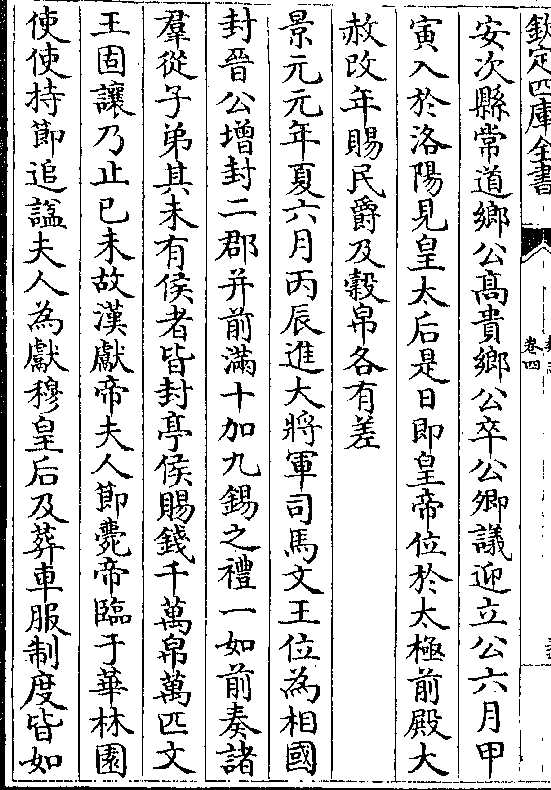 欽定四庫全書
卷四
安次縣常道鄉公高貴鄉公卒公卿議迎立公六月甲
寅入於洛陽見皇太后是日即皇帝位於太極前殿大
赦改年賜民爵及穀帛各有差
景元元年夏六月丙辰進大將軍司馬文王位為相國
封晉公增封二郡并前滿十加九錫之禮一如前奏諸
羣從子弟其未有侯者皆封亭侯賜錢千萬帛萬匹文
王固讓乃止已未故漢獻帝夫人節薨帝臨于華林園
使使持節追諡夫人為獻穆皇后及葬車服制度皆如